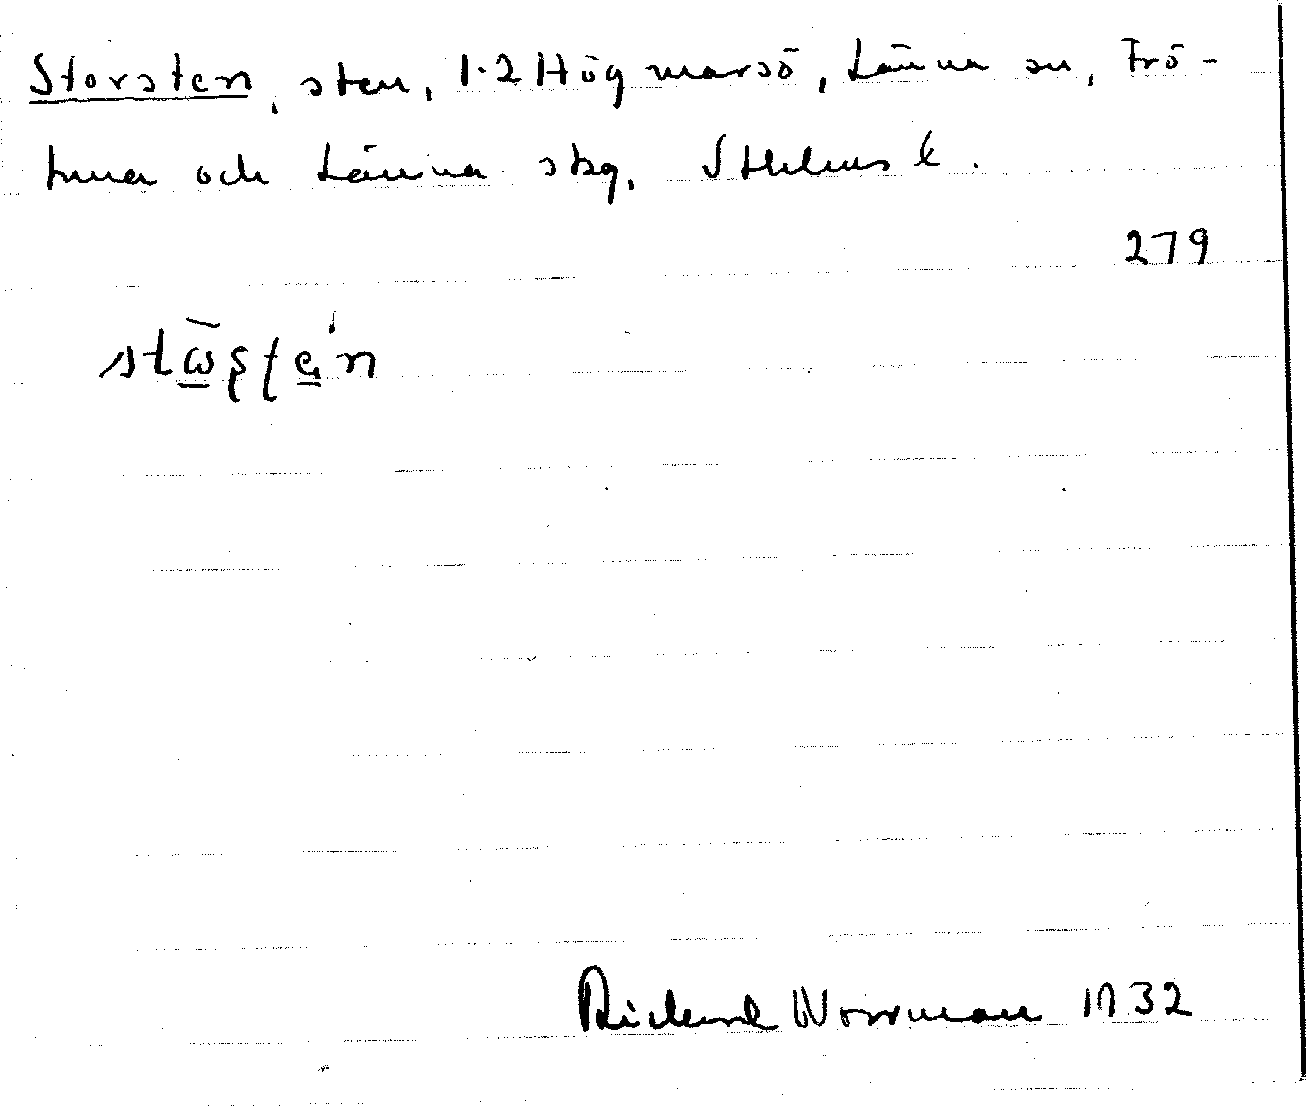 Storsten, sten, 1-2 Högmarsö, Länna sn, Frö-
tuna och Länna skg, Sthlms l.
279
Rickard Norrman 1932